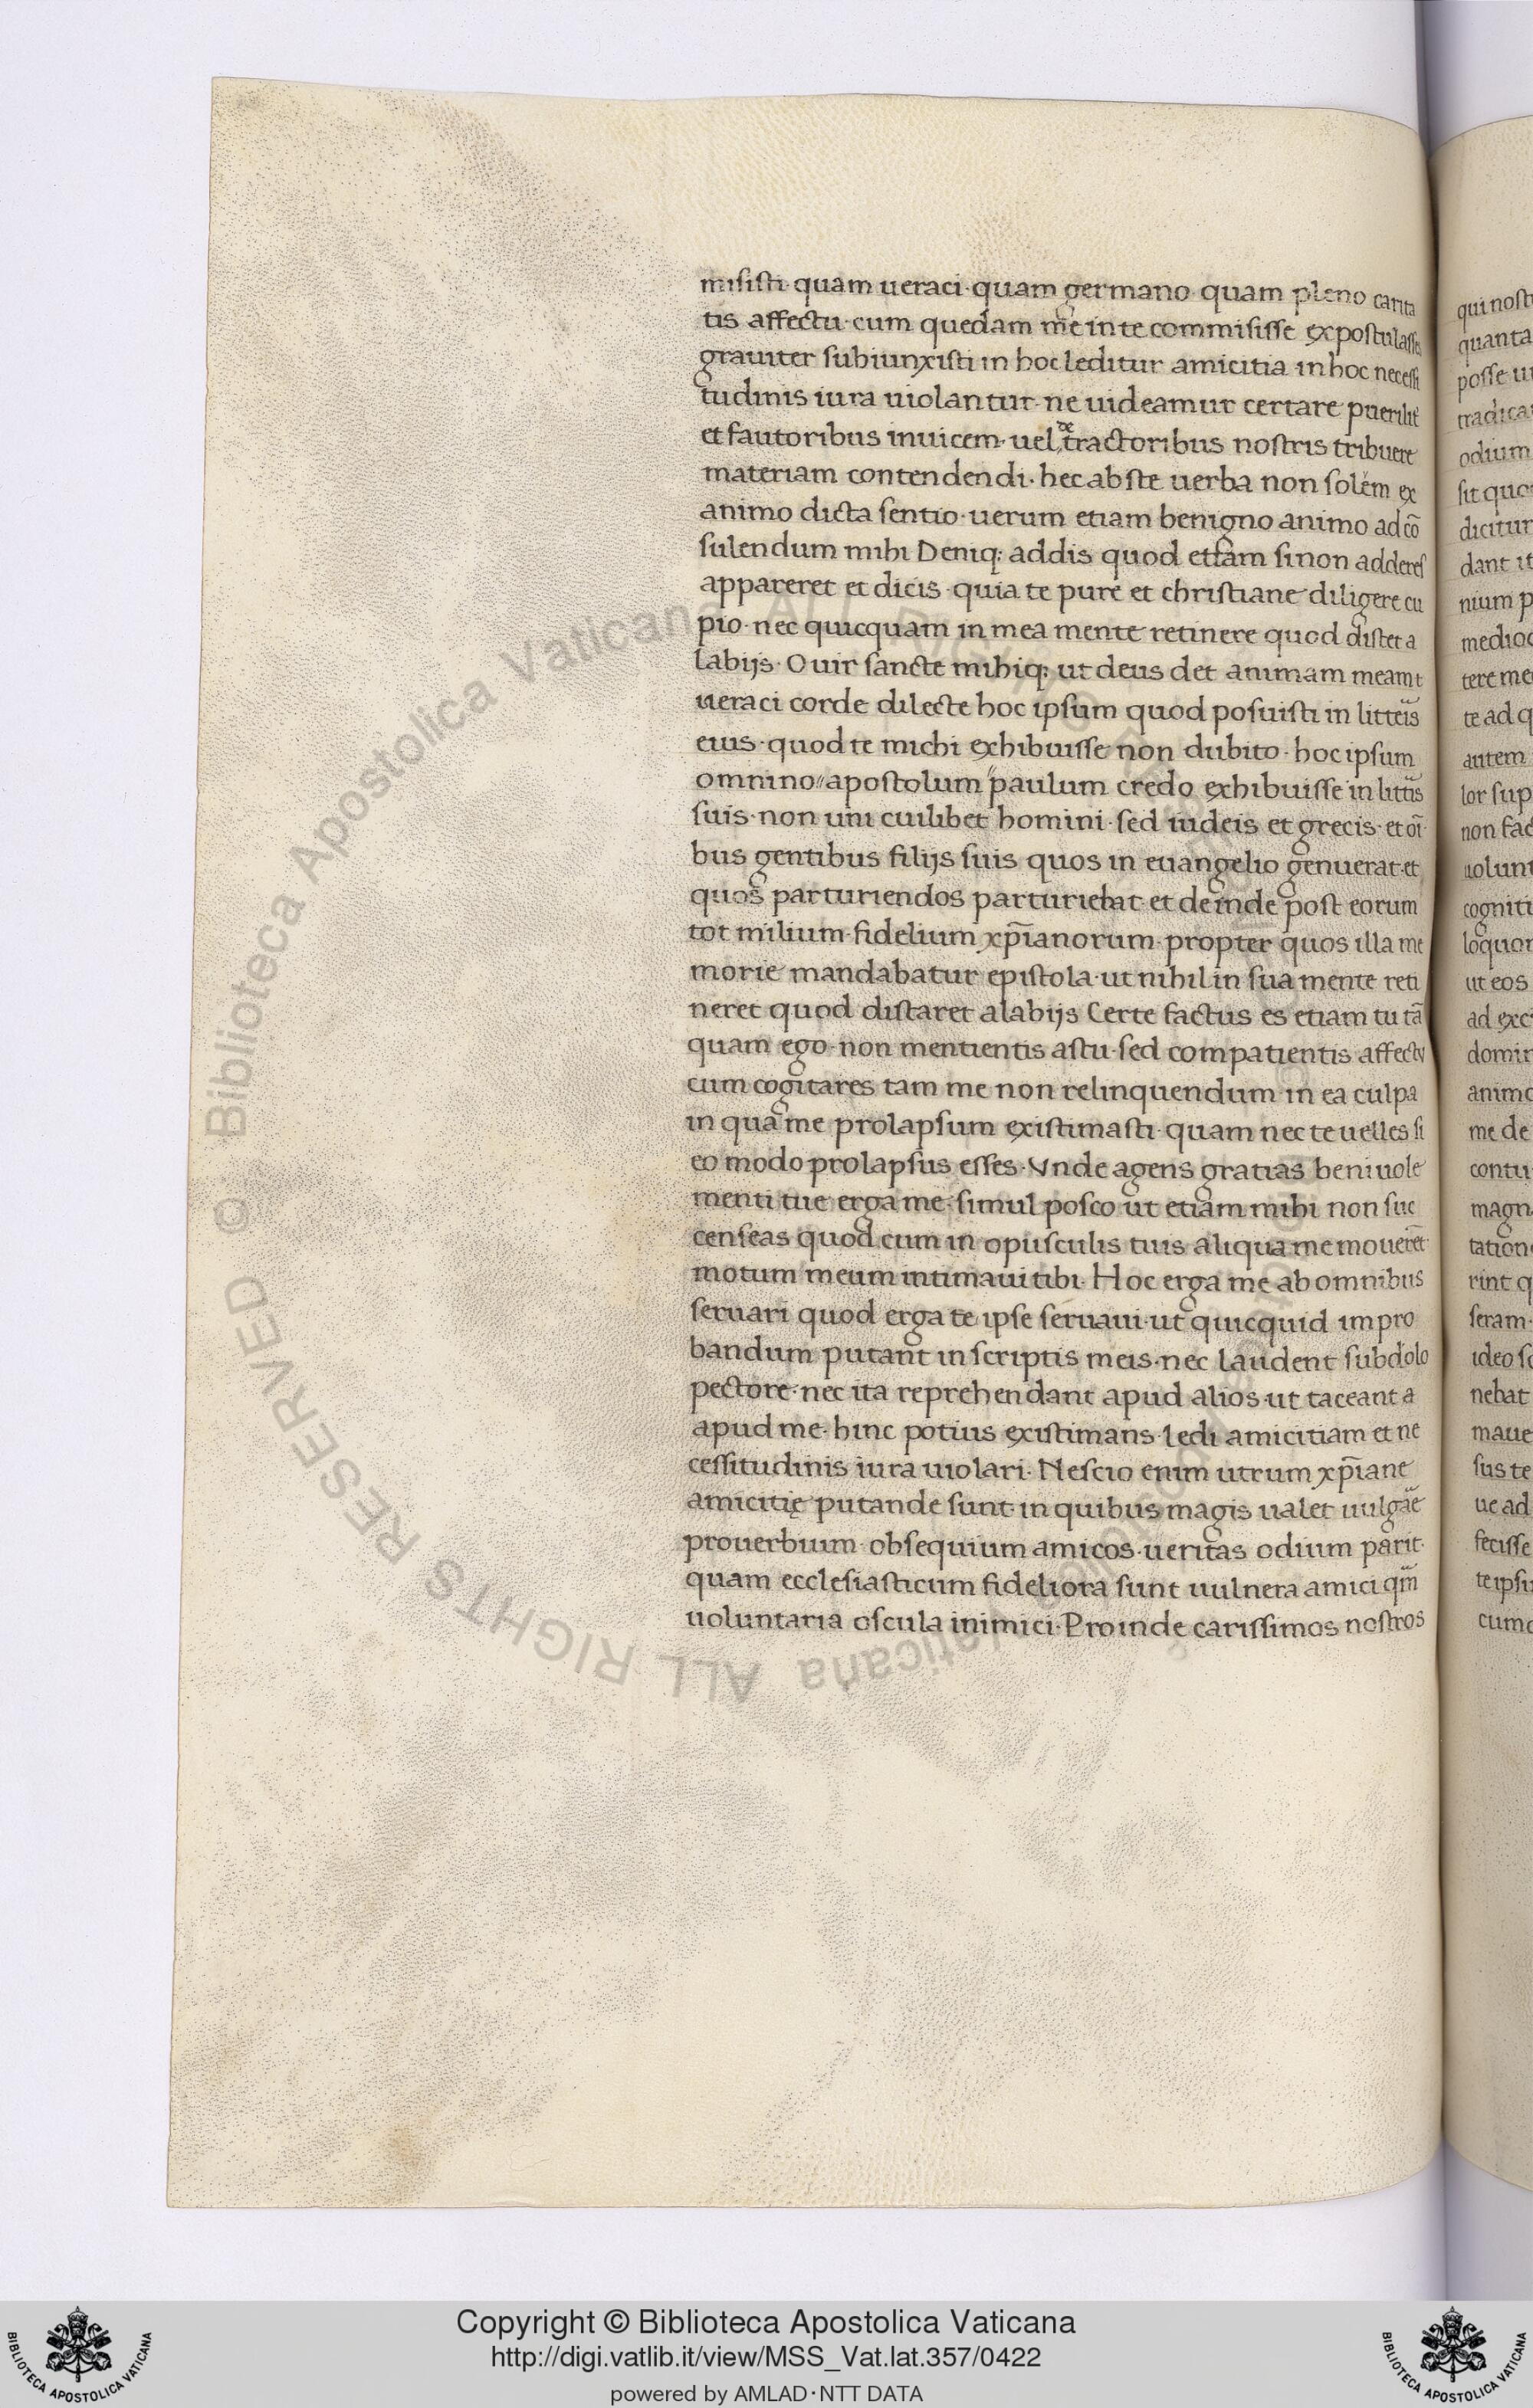 misisti· quam ueraci· quam germano· quam pleno carita
tis affectu· cum quedam me in te commisisse expostulasses
grauiter subiunxisti in hoc leditur amicitia in hoc necessi
tudinis iura uiolantur· ne uideamur certare puerilit̃
et fautoribus inuicem· uel detractoribus nostris tribuere
materiam contendendi· hec abste uerba non solem ex
animo dicta sentio· uerum etiam benigno animo ad cõ
sulendum mihi Deniq: addis quod etiam si non adderes
appareret et dicis· quia te pure et christiane diligere cu
pio· nec quicquam in mea mente retinere quod distet a
labijs· O uir sancte mihiq: ut deus det animam meam t
ueraci corde dilecte hoc ipsum quod posuisti in litteis
eius· quod te michi exhibuisse non dubito· hoc ipsum
omnino〃apostolum〃paulum credo exhibuisse in littis
suis· non uni cuilibet homini· sed iudeis et grecis· et oĩ
bus gentibus filijs suis quos in euangelio genuerat· et
quos parturiendos parturiebat· et deinde post eorum
tot milium· fidelium xp̃ianorum· propter quos illa me
morie mandabatur epistola· ut nihil in sua mente reti
neret quod distaret alabijs Certe factus es etiam tu tã
quam ego· non mentientis astu· sed compatientis affectu
cum cogitares tam me non relinquendum in ea culpa
in qua me prolapsum existimasti· quam nec te uelles si
eo modo prolapsus esses· Vnde agens gratias beniuole
menti tue erga me· simul posco ut etiam mihi non suc
censeas quod cum in opusculis tuis aliqua me mouerẽt
motum meum intimaui tibi· Hoc erga me ab omnibus
seruari quod erga te ipse seruaui· ut quicquid impro
bandum putant in scriptis meis· nec laudent subdolo
pectore· nec ita reprehendant apud alios· ut taceant a
apud me· hinc potius existimans· ledi amicitiam et ne
cessitudinis iura uiolari· Nescio enim utrum xp̃iane
amicitię putande sunt in quibus magis ualet uulgãe
prouerbium· obsequium amicos· ueritas odium parit·
quam ecclesiasticum fideliora sunt uulnera amici qm̃
uoluntaria oscula inimici· Proinde carissimos nostros
qui nost
quanta
posse ut
tradica
odium
sit quo
dicitur
dant it
nium p
medioc
tere me
te ad q
autem
lor sup
non fac
uolunt
cogniti
loquor
ut eos
ad exc
domin
animo
me de
contu
magn
tation
rint q
seram·
ideo sc
nebat
maue
sus te
ue ad
fecisse
te ipsu
cum
© Biblioteca Apostolica Vaticana ALL RIGHTS RESERVED
BIBLIOTECA APOSTOLICA VATICANA
Copyright © Biblioteca Apostolica Vaticana
http://digi.vatlib.it/view/MSS_Vat.lat.357/0422
powered by AMLAD·NTT DATA
BIBLIOTECA APOSTOLICA VATICANA